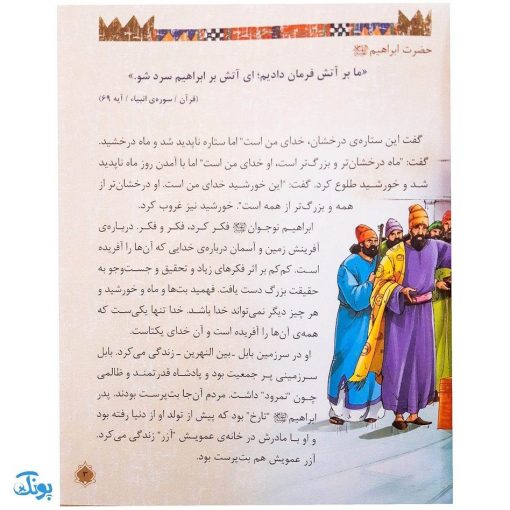 حضرت ابراهیم
«ما بر آتش فرمان دادیم؛ ای آتش بر ابراهیم سرد شو.»
(قرآن / سوره‌ی انبیاء / آیه ۶۹)
گفت این ستاره‌ی درخشان، خدای من است" اما ستاره ناپدید شد و ماه درخشید.
گفت: "ماه درخشان‌تر و بزرگ‌تر است، او خدای من است" اما با آمدن روز ماه ناپدید
شد و خورشید طلوع کرد. گفت: "این خورشید خدای من است. او درخشان‌تر از
همه و بزرگ‌تر از همه است". خورشید نیز غروب کرد.
ابراهیم نوجوان فکر کرد، فکر و فکر. درباره‌ی
آفرینش زمین و آسمان درباره‌ی خدایی که آن‌ها را آفریده
است. کم‌کم بر اثر فکرهای زیاد و تحقیق و جست‌وجو به
حقیقت بزرگ دست یافت. فهمید بت‌ها و ماه و خورشید و
هر چیز دیگر نمی‌تواند خدا باشد. خدا تنها یکی‌ست که
همه‌ی آن‌ها را آفریده است و آن خدای یکتاست.
او در سرزمین بابل ـ بین النهرین ـ زندگی می‌کرد. بابل
سرزمینی پر جمعیت بود و پادشاه قدرتمند و ظالمی
چون "نمرود" داشت. مردم آن‌جا بت‌پرست بودند. پدر
ابراهیم "تارخ" بود که پیش از تولد او از دنیا رفته بود
و او با مادرش در خانه‌ی عمویش "آزر" زندگی می‌کرد.
آزر عمویش هم بت‌پرست بود.
۳
پونک